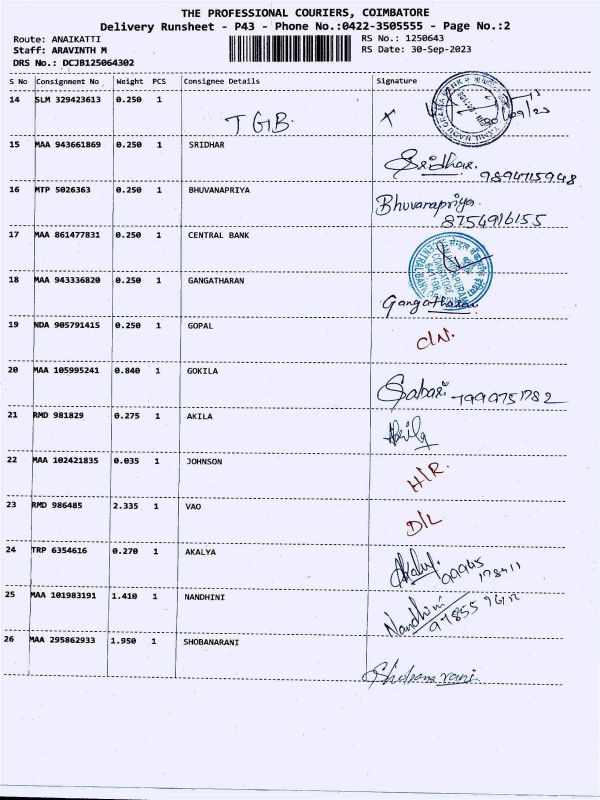 THE PROFESSIONAL COURIERS, COIMBATORE
Delivery Runsheet - P43 - Phone No.:0422-3505555 - Page No.:2
Route: ANAIKATTI
Staff: ARAVINTH M
DRS No.: DCJB125064302
RS No.: 1250643
RS Date: 30-Sep-2023
S No Consignment No Weight PCS Consignee Details Signature
14 SLM 329423613 0.250 1
TGB
15 MAA 943661869 0.250 1 SRIDHAR
Sridhar. 9894715948
16 MTP 5026363 0.250 1 BHUVANAPRIYA
Bhuvanapriya
8754916155
17 MAA 861477831 0.250 1 CENTRAL BANK
18 MAA 943336820 0.250 1 GANGATHARAN
Gangatharan
19 NDA 905791415 0.250 1 GOPAL
20 MAA 105995241 0.840 1 GOKILA
Sabari 7999751782
21 RMD 981829 0.275 1 AKILA
Akila
22 MAA 102421835 0.035 1 JOHNSON
H/R.
23 RMD 986485 2.335 1 VAO
D/L
24 TRP 6354616 0.270 1 AKALYA
25 MAA 101983191 1.410 1 NANDHINI
Nandhini
26 MAA 295862933 1.950 1 SHOBANARANI
Shobana rani.